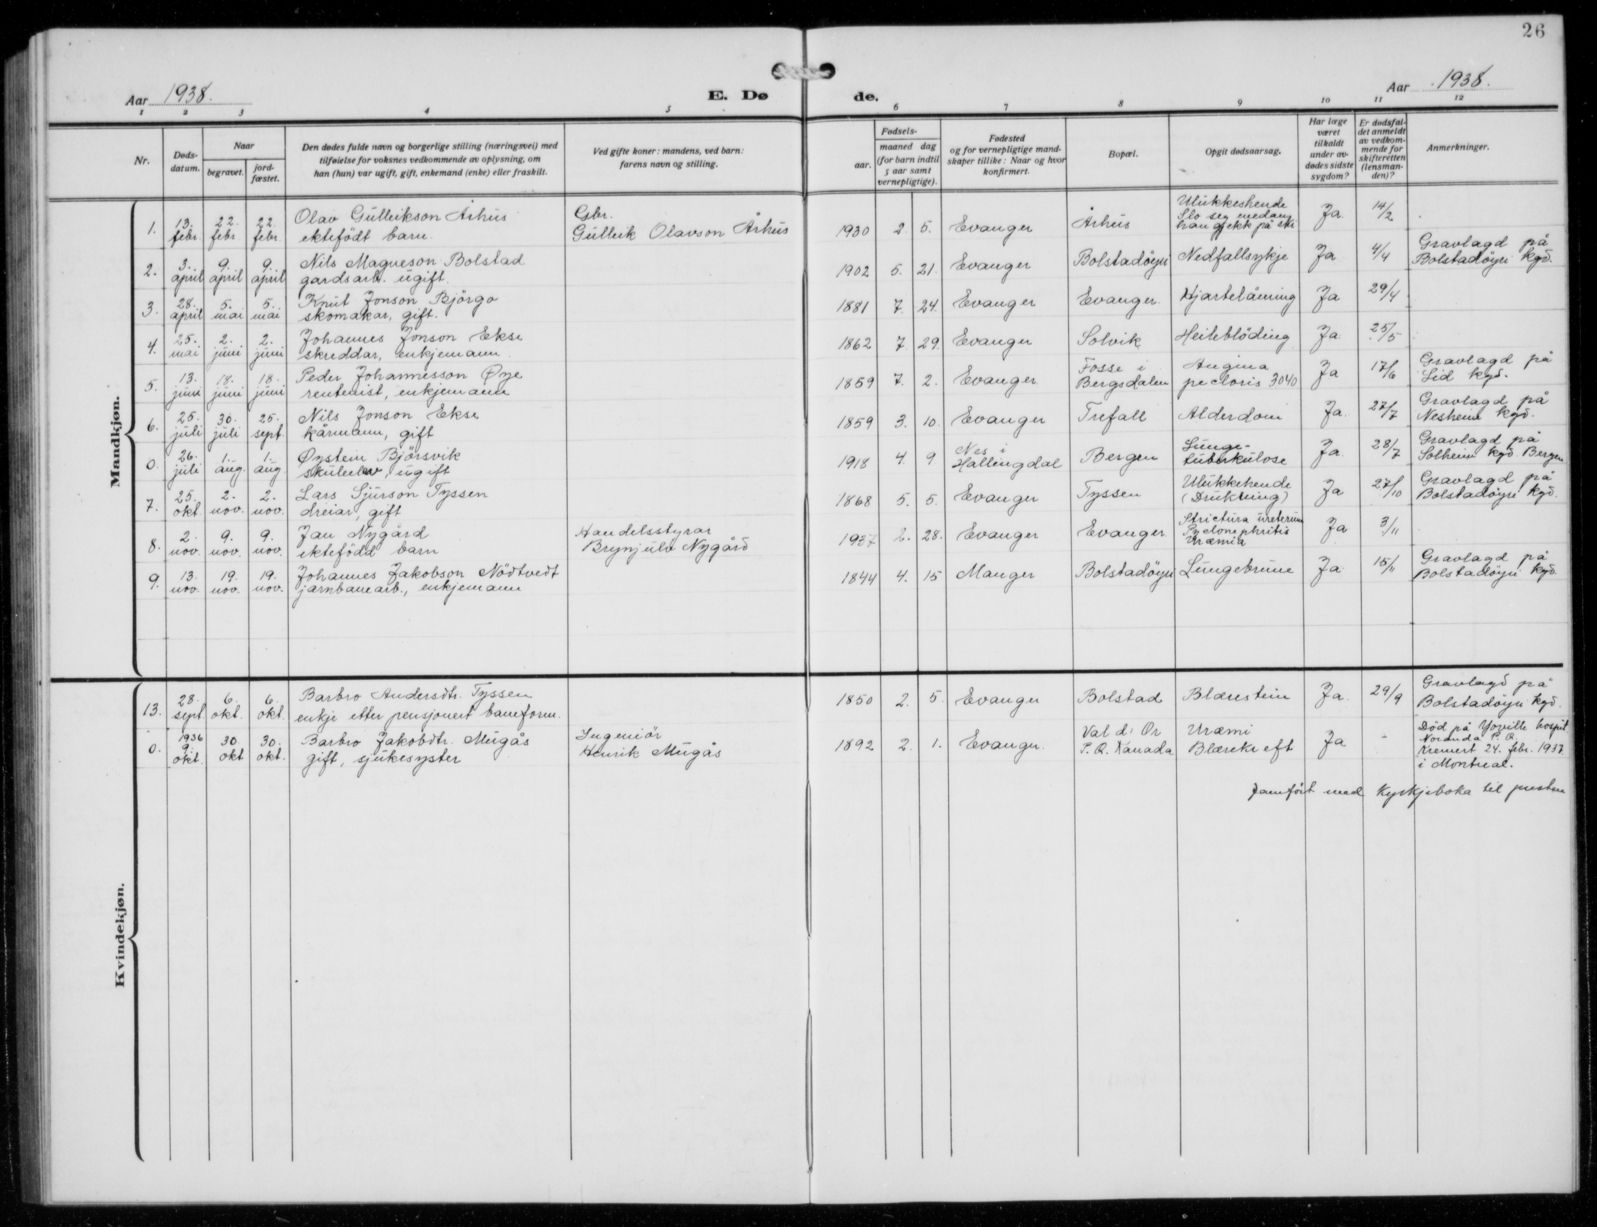 26
Aar 1938.
E. Dø
de.
Aar 1938.
1 2 3 4 5 6 7 8 9 10 11 12
Nr.
Døds-
datum.
Naar
begravet.
jord-
fæstet.
Den dødes fulde navn og borgerlige stilling (næringsvei) med
tilføielse for voksnes vedkommende av oplysning, om
han (hun) var ugift, gift, enkemand (enke) eller fraskilt.
Ved gifte koner: mandens, ved barn:
farens navn og stilling.
Fødsels-
aar.
maaned dag
(for barn indtil
5 aar samt
vernepligtige).
Fødested
og for vernepligtige mand-
skaper tillike: Naar og hvor
konfirmert.
Bopæl.
Opgit dødsaarsag.
Har læge
været
tilkaldt
under av-
dødes sidste
sygdom?
Er dødsfal-
det anmeldt
av vedkom-
mende for
skifteretten
(lensman-
den)?
Anmerkninger.
Mandkjøn.
1. 13. febr. 22. febr. 22. febr. Olav Gulleikson Århus
ektefödt barn.
Gbr.
Gulleik Olavson Århus
1930 2. 5. Evanger Århus
Ulukkeshende
Slo seg medan
han gjekk på ski
Ja. 14/2
2. 3. april 9. april 9. april Nils Magneson Bolstad
gardsarb. ugift.
1902 5. 21. Evanger Bolstadöyri Nedfallsykje Ja 4/4
Gravlagd på
Bolstadöyri kyd.
3. 28. april 5. mai 5. mai Knut Jonson Björgo
skomakar, gift.
1881 7. 24. Evanger Evanger Hjartelåming Ja 29/4
4. 25. mai 2. juni 2. juni Johannes Jonson Ekse
skreddar, enkjemann.
1862 7. 29. Evanger Solvik Heileblöding Ja 25/5
5. 13. juni 18. juni 18. juni Peder Johannesson Øye
rentenist, enkjemann
1859 7. 2. Evanger
Fosse i
Bergsdalen
Angina
pectoris 3040
Ja 17/6
Gravlagd på
Lid kyd.
6. 25. juli 30. juli 25. sept. Nils Jonson Ekse
kårmann, gift
1859 3. 10. Evanger Trefall Alderdom Ja. 27/7
Gravlagd på
Nesheim kyd.
0. 26. juli 1. aug. 1. aug Øystein Bjørsvik
skuleelev, ugift
1918 4. 9
Nes i
Hallingdal
Bergen
Lunge-
tuberkulose
Ja. 28/7
Gravlagd på
Solheim kyd Bergen
7. 25. okt. 2. nov. 2. nov. Lars Sjurson Tyssen
dreiar, gift
1868 5. 5. Evanger Tyssen
Ulukkehende
(Drukning)
Ja 27/10
Gravlagd på
Bolstadöyri kyd.
8. 2. nov. 9. nov. 9. nov. Jan Nygård
ektefödd barn
Handelsstyrar
Brynjulv Nygård
1937 2. 28. Evanger Evanger
Strictura ureterum
Pyelonephritis
Uræmia
Ja 3/11
9. 13. nov. 19. nov. 19. nov. Johannes Jakobson Nödtvedt
jarnbanearb., enkjemann
1844 4. 15 Manger Bolstadöyri Lungebrune Ja 15/11
Gravlagd på
Bolstadöyri kyd.
Kvindekjøn.
13. 28. sept 6. okt. 6. okt. Barbro Andersdtr. Tyssen
enkje etter pensjonert baneform.
1850 2. 5. Evanger Bolstad Blærestein Ja. 29/9
Gravlagd på
Bolstadöyri kyd.
0. 1936 9. okt. 30. okt 30. okt. Barbro Jakobdtr. Mugås
gift, sjukesyster
Ingeniör
Henrik Mugås
1892 2. 1. Evanger
Val d' Or
P.Q. Kanada
Uræmi
Blærekreft
Ja -
Död på Yoville hospit.
Noranda P.Q.
Kremert 24. febr. 1937
i Montreal.
Jamfört med kyrkjeboka til presten